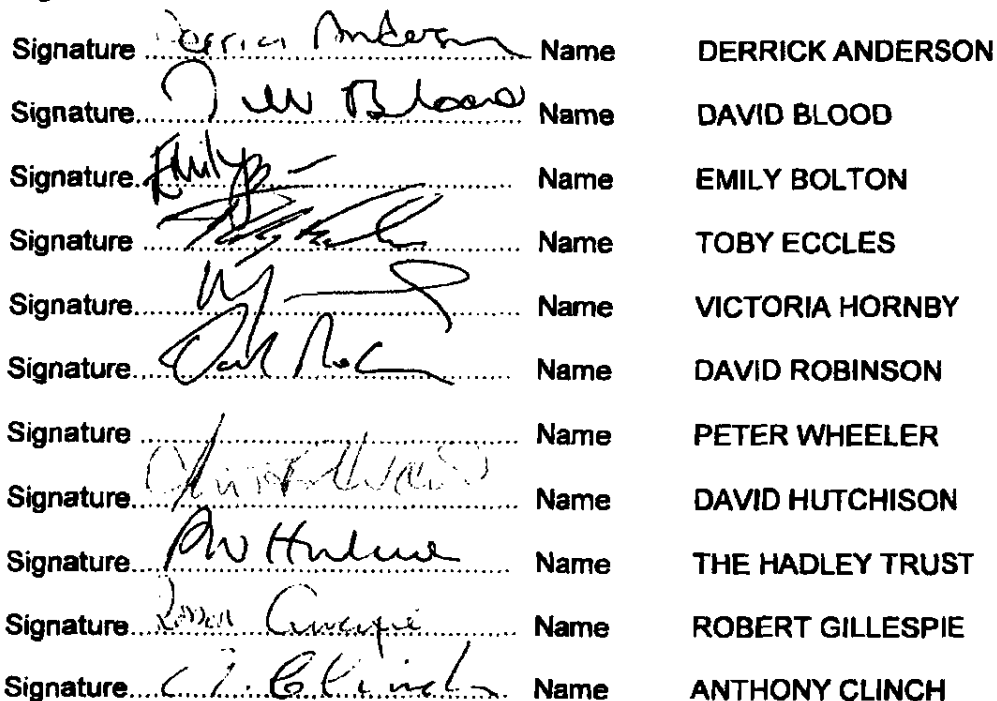 Signature Derrick Anderson Name DERRICK ANDERSON
Signature Blood Name DAVID BLOOD
Signature Emily Name EMILY BOLTON
Signature Name TOBY ECCLES
Signature Name VICTORIA HORNBY
Signature Name DAVID ROBINSON
Signature Name PETER WHEELER
Signature Name DAVID HUTCHISON
Signature Name THE HADLEY TRUST
Signature Name ROBERT GILLESPIE
Signature Clinch Name ANTHONY CLINCH